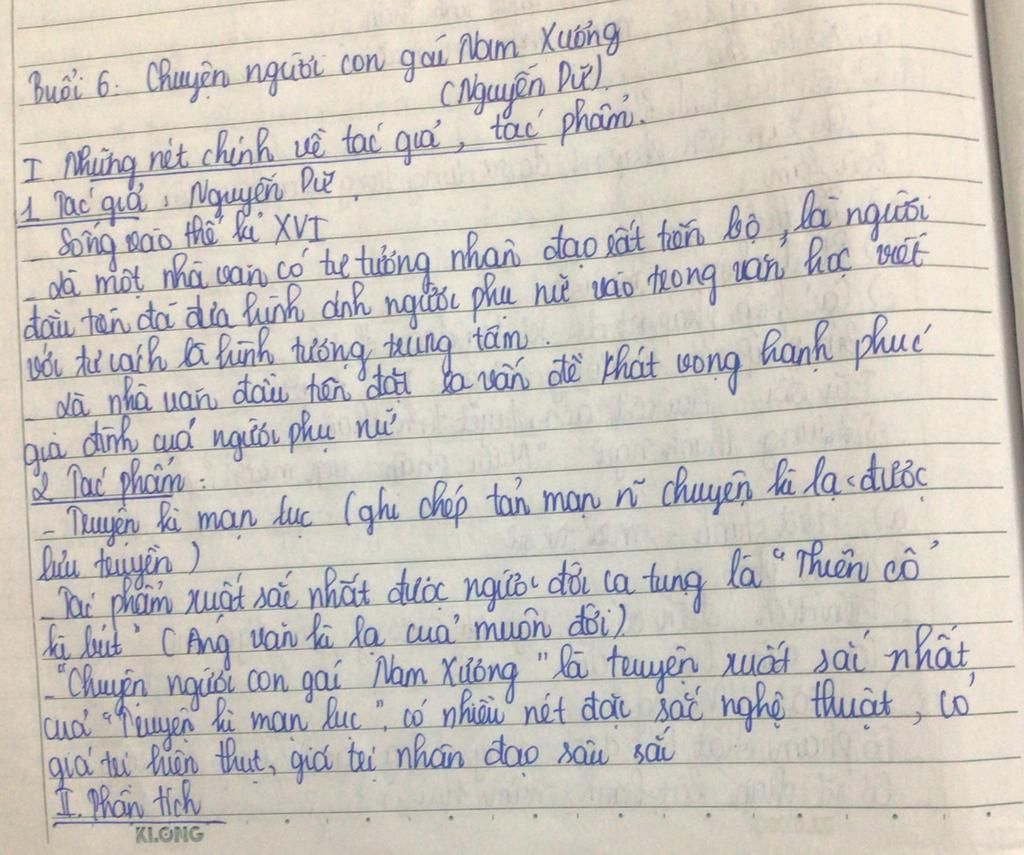 Buổi 6: Chuyện người con gái Nam Xương
(Nguyễn Dữ).
I Những nét chính về tác giả, tác phẩm.
1 Tác giả: Nguyễn Dữ.
- Sống vào thế kỉ XVI
- Là một nhà văn có tư tưởng nhân đạo rất tiến bộ, là người
đầu tiên đã đưa hình ảnh người phụ nữ vào trong văn học viết
với tư cách là hình tượng trung tâm.
- Là nhà văn đầu tiên đặt ra vấn đề khát vọng hạnh phúc
gia đình của người phụ nữ
2 Tác phẩm:
- Truyền kì mạn lục (ghi chép tản mạn n~ chuyện kì lạ được
lưu truyền)
- Tác phẩm xuất sắc nhất được người đời ca tụng là "Thiên cổ
kì bút" (Áng văn kì lạ của muôn đời)
- "Chuyện người con gái Nam Xương" là truyện xuất sắc nhất
của "Truyền kì mạn lục", có nhiều nét đặc sắc nghệ thuật, có
giá trị hiện thực, giá trị nhân đạo sâu sắc
II. Phân tích
KLONG